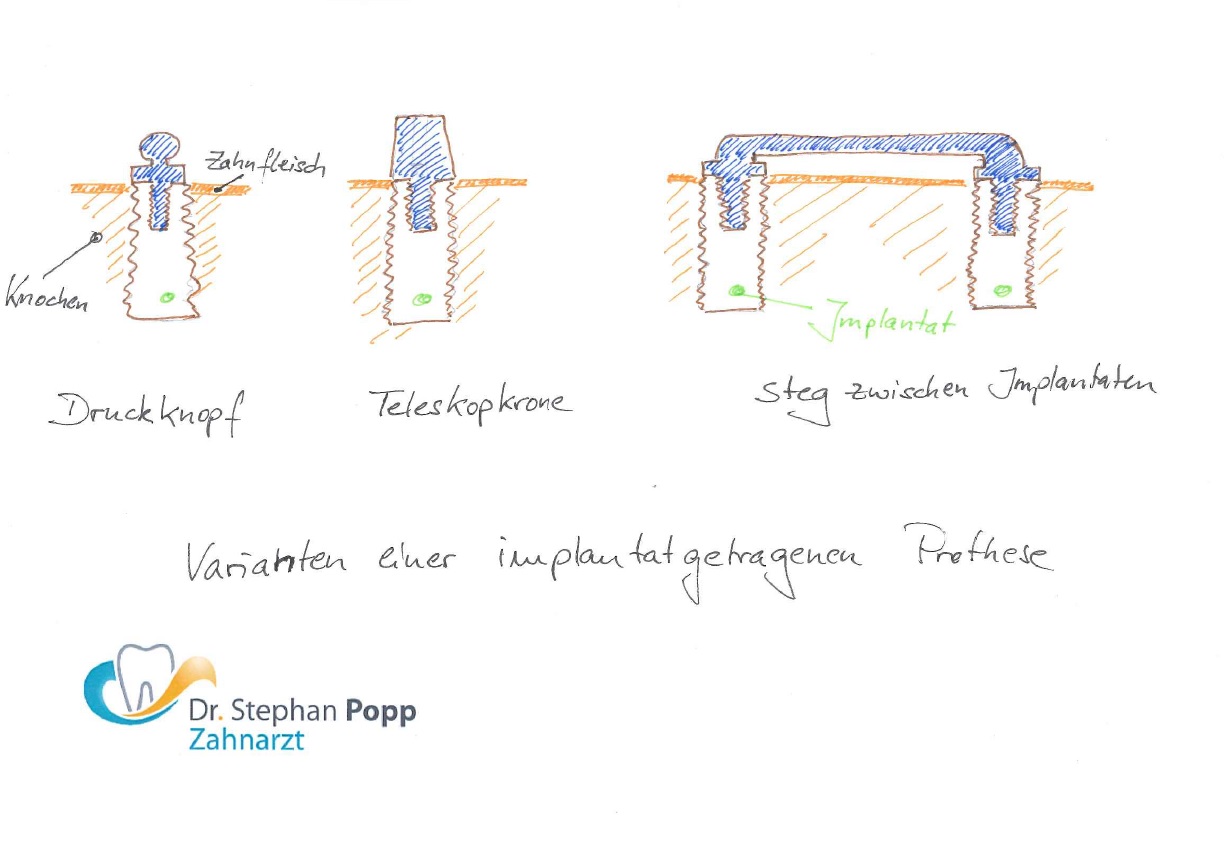 Zahnfleisch
Knochen
Implantat
Druckknopf
Teleskopkrone
Steg zwischen Implantaten
Varianten einer implantatgetragenen Prothese
Dr. Stephan Popp
Zahnarzt